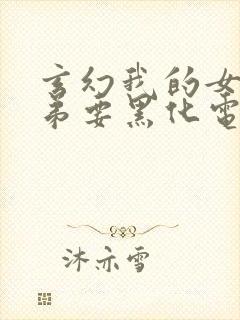 玄幻我的女
弟要黑化电
沐亦雪